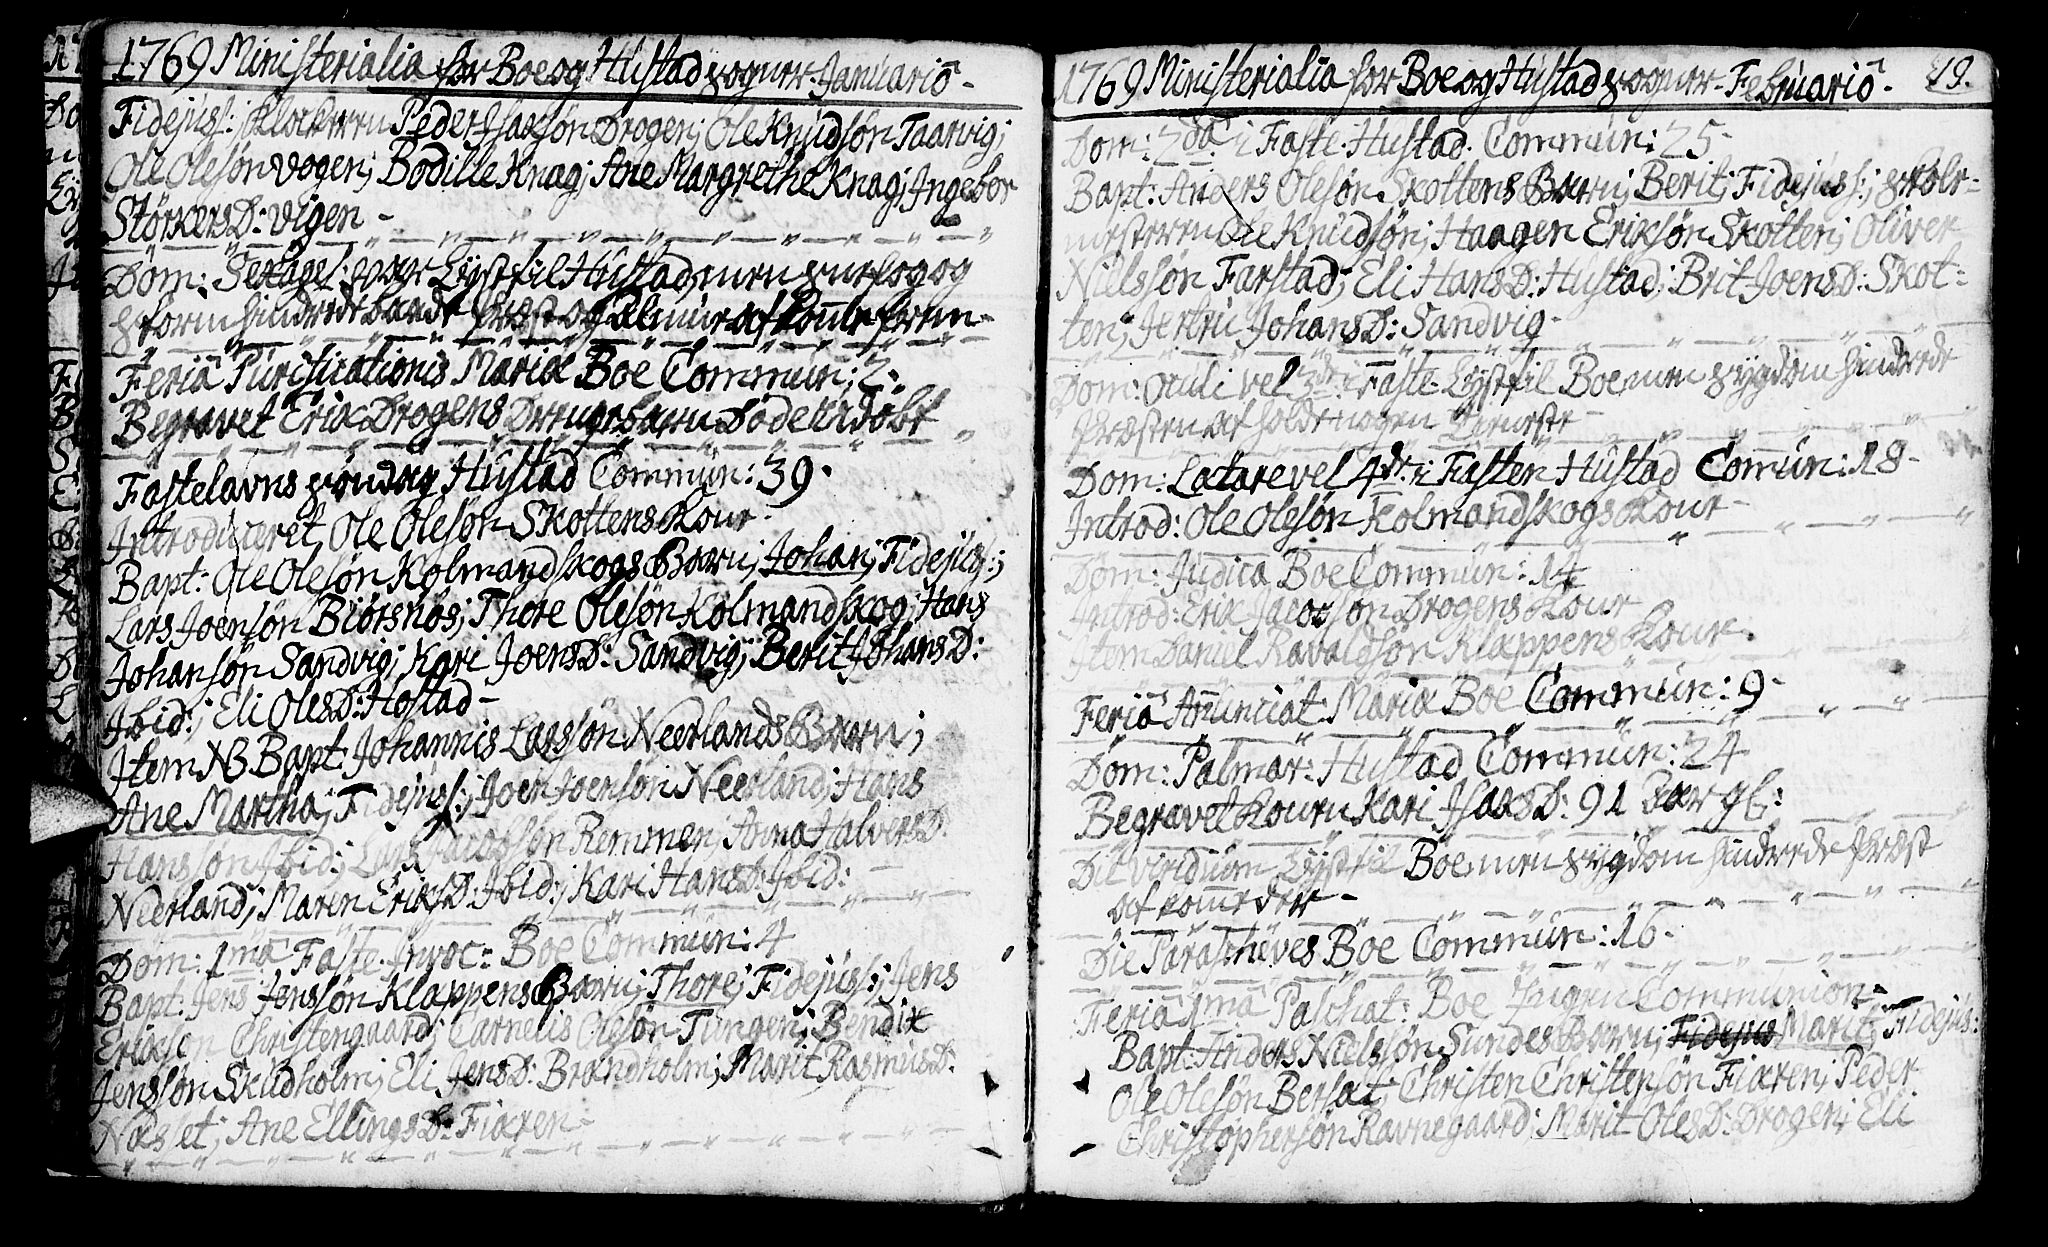 1769 Ministerialia for Boe og Hustad Sogner Januario
Fidejuss: Klockeren Peder Isaksøn Drogen; Ole Knudsøn Taarvig;
Ole Olesøn Vogen; Bodille Knag; Ane Margrethe Knag; Ingebor
StørkersD: Vigen -
Dom: Sexages: var Lyst til Hustad, men Snefog og
Storm hindrede baade Præst og Almue at komme frem -
Feria Purificationis Mariæ Boe Commun: 2.
Begravet Erik Drogens Drengebarn Døde Udøbt
Fastelavns Søndag Hustad Commun: 39.
Introduceret Ole Olesøn Skottens Kone
Bapt: Ole Olesøn Kolmandskogs Barn; Johan; Fidejus:;
Lars Joensøn Biørsnøs; Thore Olesøn Kolmandskog; Hans
Johansøn Sandvig; Kari JoensD: Sandvig; Berit JohansD:
Ibid:; Eli OlesD: Hostad -
Item NB Bapt: Johannis Larssøn Neerlands Barn;
Ane Martha; Fidejuss:; Joen Joensøn Neerland; Hans
Hanssøn Ibid:; Lars Jacobsøn Remmen; Anna HalversD:
Neerland; Maren EriksD: Ibid:; Kari HansD: Ibid: -
Dom: 1ma Faste. Invoc: Boe Commun: 4
Bapt: Jens Jenssøn Klappens Barn; Thore; Fidejuss:; Jens
Eriksøn Christengaard; Carnelis Olesøn Tungen; Bendix
Jenssøn Skudholm; Eli JensD: Brandholm; Marit RasmusD:
Næsset; Ane EllingsD: Fiæren -
1769 Ministerialia for Boe og Hustad Sogner - Februario - 19.
Dom: 2da i Faste. Hustad. Commun: 25 -
Bapt: Anders Olesøn Skottens Barn; Berit; Fidejuss:; Skole-
mesteren Ole Knudsøn; Haagen Eriksøn Skotten; Oliver
Nielssøn Farstad; Eli HansD: Hustad; Brit JoensD: Skot-
ten; Jertru JohansD: Sandvig -
Dom: Oculi vel 3die i Faste. Lyst til Boe men Sygdom hindrede
Præsten at holde nogen Tieneste -
Dom: Lætare vel 4de i Fasten Hustad Comun: 18 -
Introd: Ole Olesøn Kolmandskogs Kone -
Dom: Judica Boe Commun: 14
Introd: Erik Jacobsøn Drogens Kone
Item Daniel Ravaldsøn Klappens Kone.
Feria Anunciat: Mariæ Boe Commun: 9 -
Dom: Palmar: Hustad Commun: 24
Begravet Konen Kari IsaksD: 91 Aar gl:
Die Viridium Lyst til Boe men Sygdom hindrede Præst
at komme der -
Die Parasceves Boe Commun: 16 -
Feria 1ma Paschat: Boe Ingen Communion -
Bapt: Anders Nielssøn Sundes Barn; Fidejus Marit; Fidejus:
Ole Olesøn Bersæt; Christen Christensøn Fiæren; Peder
Christophersøn Ravnegaard; Marit OlesD: Drogen; Eli